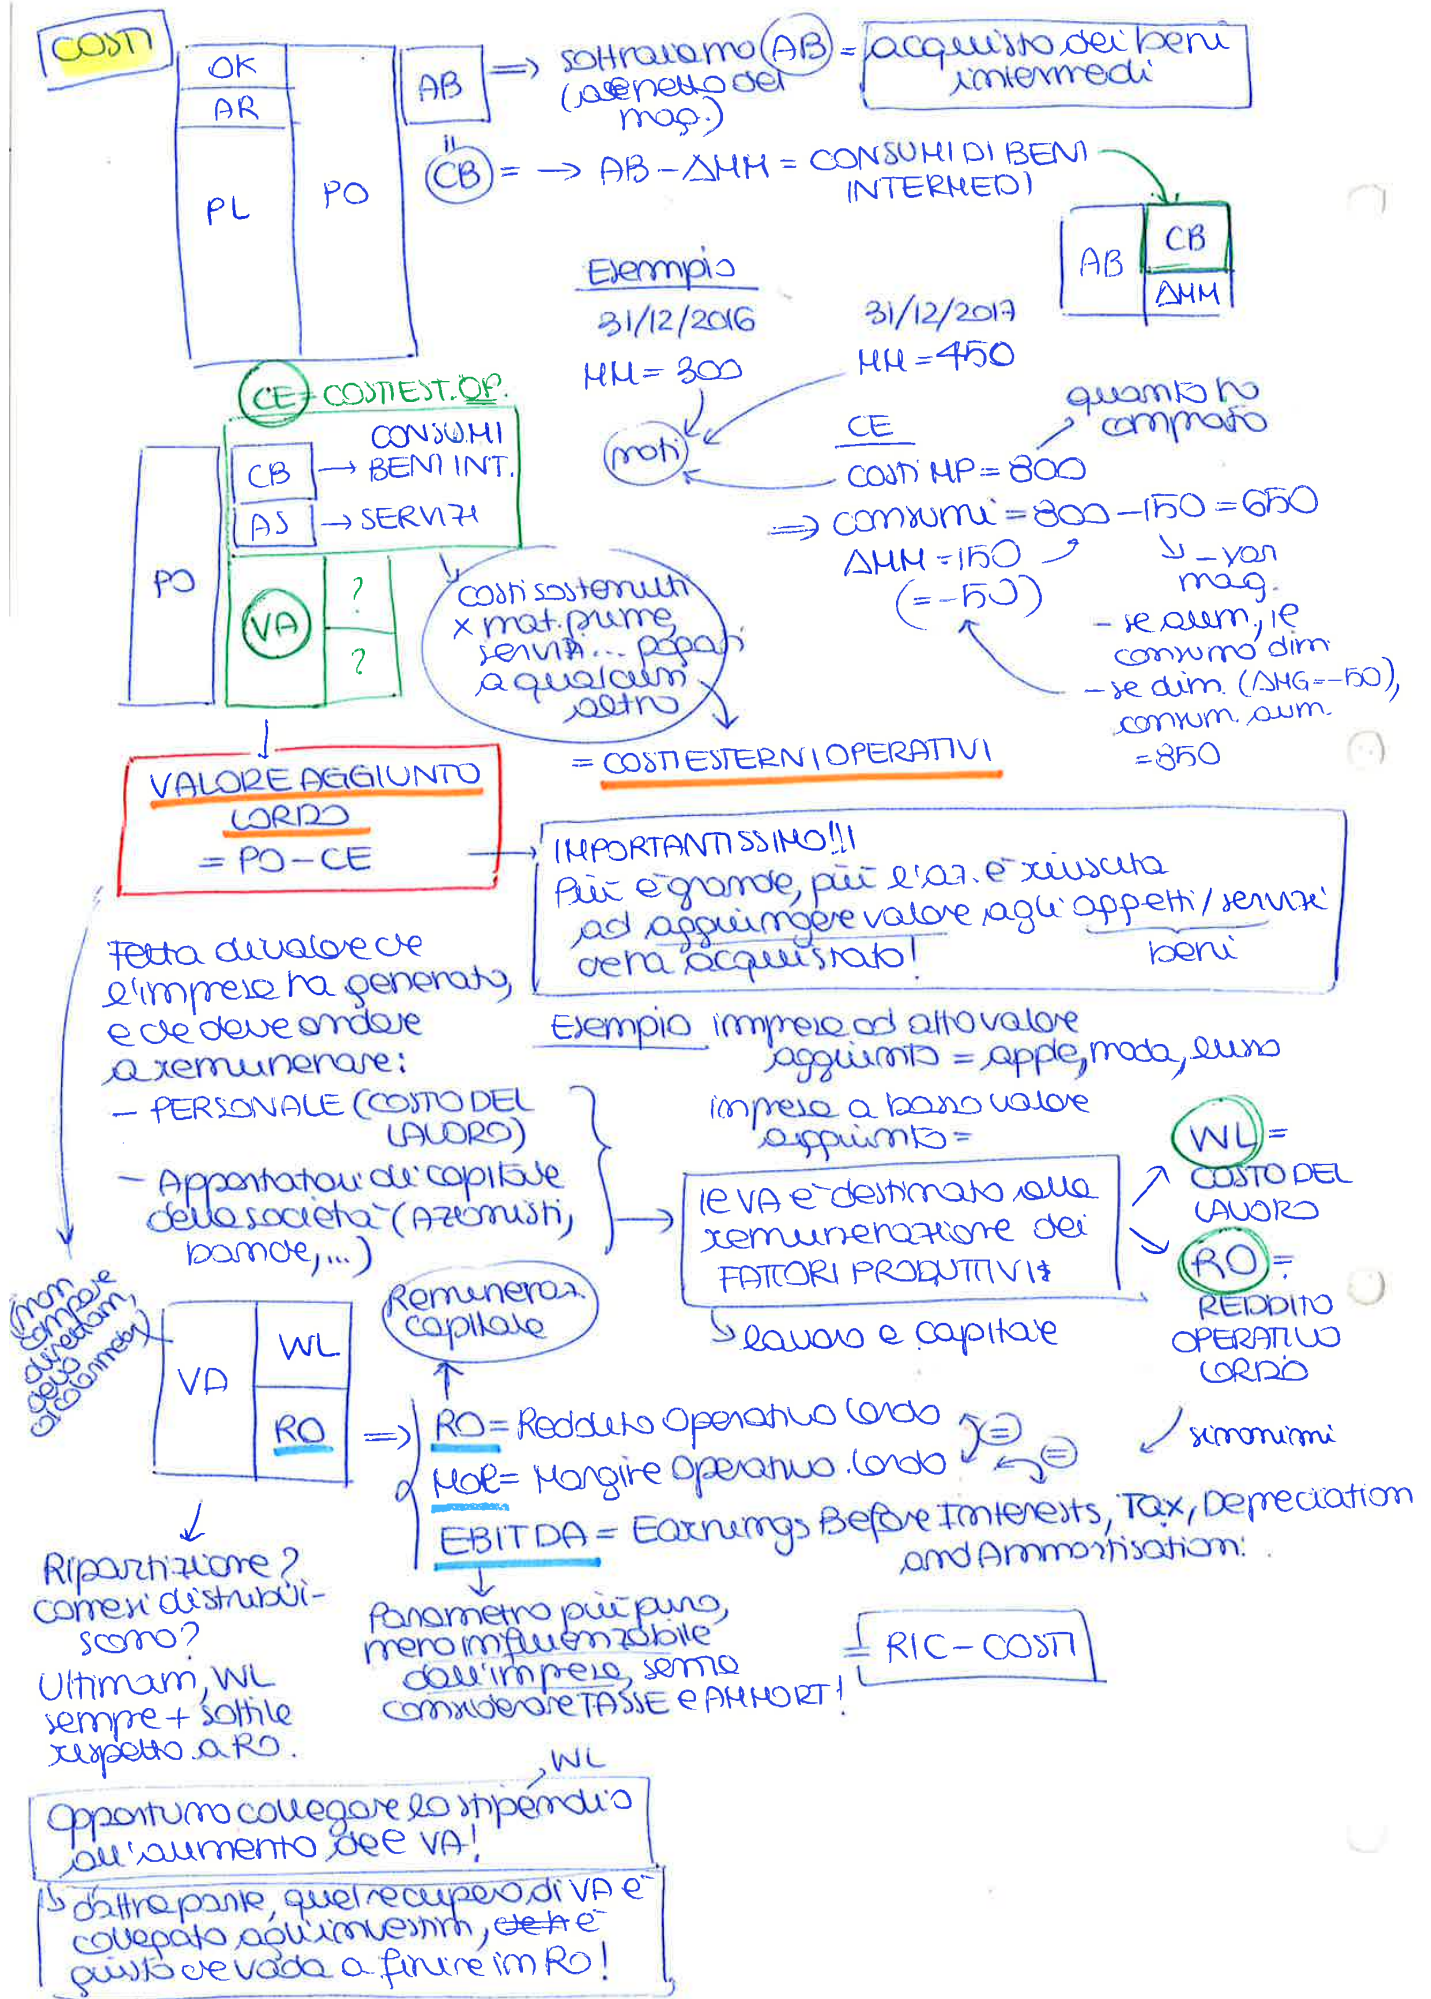 COSTI
OK
AR
PL
PO
AB
=> sottraiamo (AB) = acquisto dei beni
intermedi
(al netto del
mag.)
=
CB = → AB - ΔMM = CONSUMI DI BENI
INTERMEDI
AB
CB
ΔMM
Esempio
31/12/2016
31/12/2017
MM = 300
MM = 450
noti
CE
quanto ho
comprato
costi MP = 800
=> consumi = 800 - 150 = 650
ΔMM = 150
(= -50)
- var
mag.
- se aum, il
consumo dim
- se dim. (ΔMG = -50),
consum. aum.
= 850
CE = COSTI EST. OP.
PO
CB → CONSUMI
BENI INT.
AS → SERVIZI
VA
?
?
costi sostenuti
x mat. prime,
servizi... pagati
a qualcun
altro
= COSTI ESTERNI OPERATIVI
VALORE AGGIUNTO
LORDO
= PO - CE
IMPORTANTISSIMO!!!
Più è grande, più l'az. è riuscita
ad aggiungere valore agli oggetti / servizi
che ha acquistato!
beni
Fetta di valore che
l'impresa ha generato,
e che deve andare
a remunerare:
- PERSONALE (COSTO DEL
LAVORO)
- Apportatori di capitale
della società (Azionisti,
banche, ...)
Esempio imprese ad alto valore
aggiunto = apple, moda, lusso
impresa a basso valore
aggiunto =
il VA è destinato alla
remunerazione dei
FATTORI PRODUTTIVI
lavoro e capitale
WL =
COSTO DEL
LAVORO
RO =
REDDITO
OPERATIVO
LORDO
sinonimi
(non
compare
direttam,
devo
calcolarmelo)
VA
WL
RO
Remuneraz.
capitale
=> RO = Reddito Operativo Lordo
MOL = Margine Operativo Lordo
=
=
EBITDA = Earnings Before Interests, Tax, Depreciation
and Ammortisation.
Parametro più puro,
meno influenzabile
dall'impresa, senza
considerare TASSE e AMMORT!
= RIC - COSTI
Ripartizione?
come si distribui-
scono?
Ultimam, WL
sempre + sottile
rispetto a RO.
WL
Opportuno collegare lo stipendio
all'aumento del VA!
d'altra parte, quel recupero di VA è
collegato agli investim, è
giusto che vada a finire in RO!